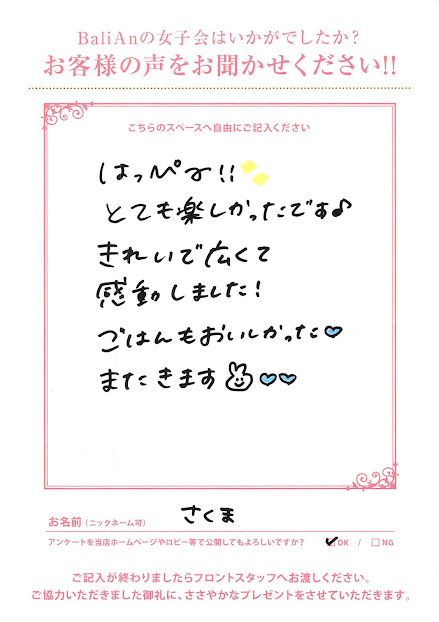 BaliAnの女子会はいかがでしたか?
お客様の声をお聞かせください!!
こちらのスペースへ自由にご記入ください
はっぴー!!
とても楽しかったです♪
きれいで広くて
感動しました!
ごはんもおいしかった
またきます
お名前(ニックネーム可) さくま
アンケートを当店ホームページやロビー等で公開してもよろしいですか? ☑OK / □NG
ご記入が終わりましたらフロントスタッフへお渡しください。
ご協力いただきました御礼に、ささやかなプレゼントをさせていただきます。